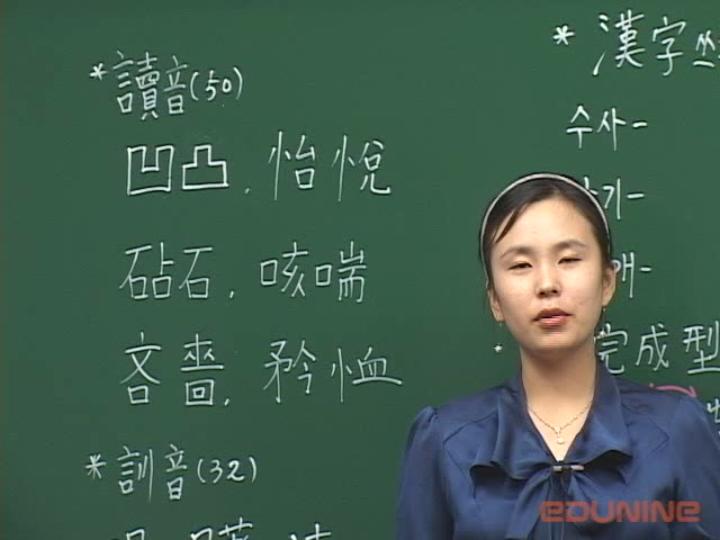 * 讀音(50)
凹凸, 怡悅
砧石, 咳喘
吝嗇, 矜恤
* 訓音(32)
* 漢字
수사-
기-
애-
完成型
EDUNINE